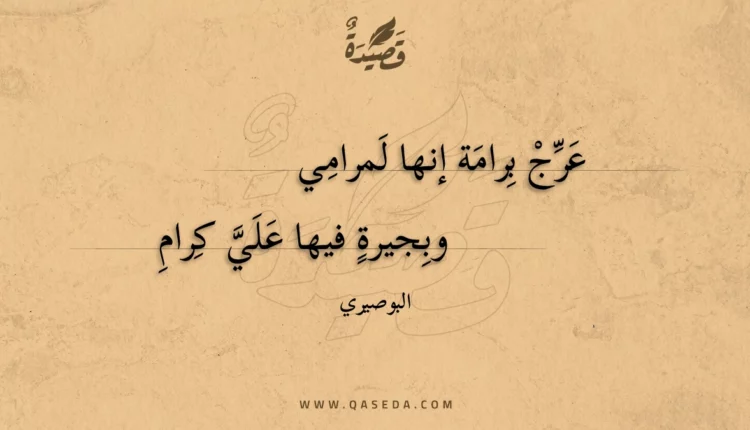 قَصِيْدَةٌ
عَرِّجْ بِرامَة إنها لَمرامِي
وبِجيرةٍ فيها عَلَيَّ كِرامِ
البوصيري
WWW.QASEDA.COM